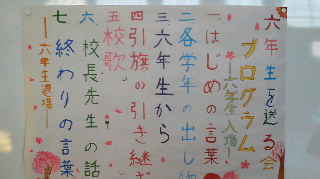 六年生を送る会
プログラム
ー六年生入場ー
一はじめの言葉
二各学年の出し物
三六年生から
四引旗の引き継ぎ
五校歌
六校長先生の話
七終わりの言葉
ー六年生退場ー